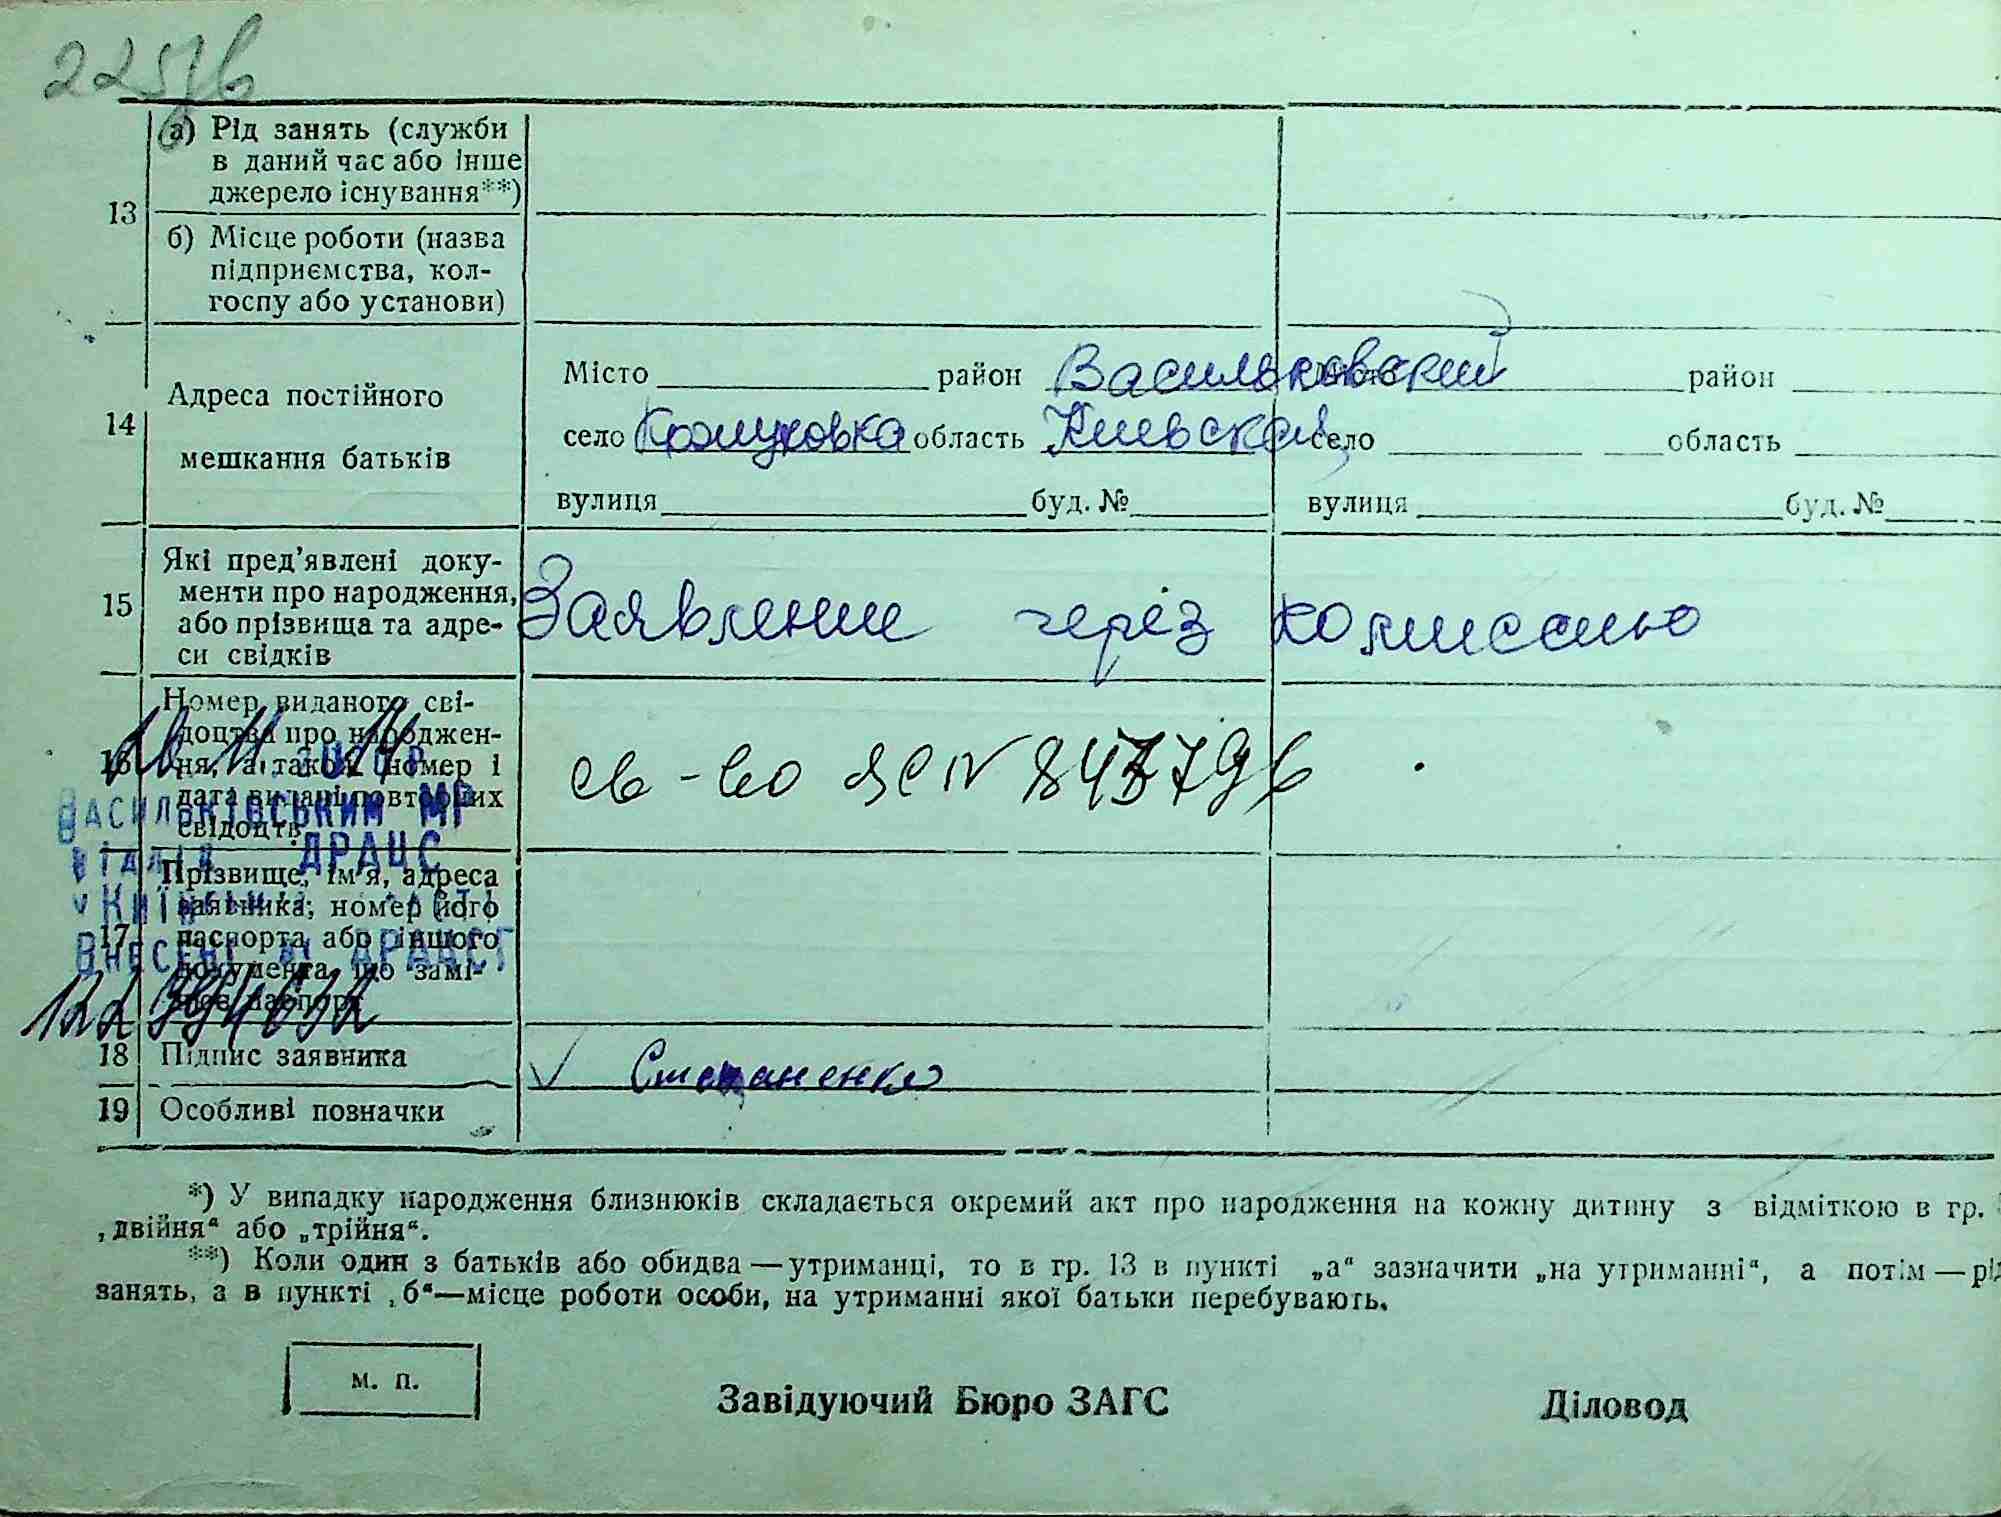 13
а) Рід занять (служби
в даний час або інше
джерело існування**)
б) Місце роботи (назва
підприємства, кол-
госпу або установи)
14
Адреса постійного
мешкання батьків
Місто район Васильковский район
село область Киевская село область
вулиця буд. № вулиця буд. №
15
Які пред'явлені доку-
менти про народження,
або прізвища та адре-
си свідків
Заявление через комиссию
16
Номер виданого сві-
доцтва про народжен-
ня, а також номер і
дата видачі повторних
свідоцтв
св-во
ВАСИЛЬКІВСЬКИМ МР
ВІДДІЛ ДРАЦС
17
Прізвище, ім'я, адреса
заявника, номер його
паспорта або іншого
документа, що замі-
нює паспорт
18 Підпис заявника
Степаненко
19 Особливі позначки
*) У випадку народження близнюків складається окремий акт про народження на кожну дитину з відміткою в гр.
„двійня“ або „трійня“.
**) Коли один з батьків або обидва — утриманці, то в гр. 13 в пункті „а“ зазначити „на утриманні“, а потім — рід
занять, а в пункті „б“—місце роботи особи, на утриманні якої батьки перебувають.
м. п.
Завідуючий Бюро ЗАГС Діловод